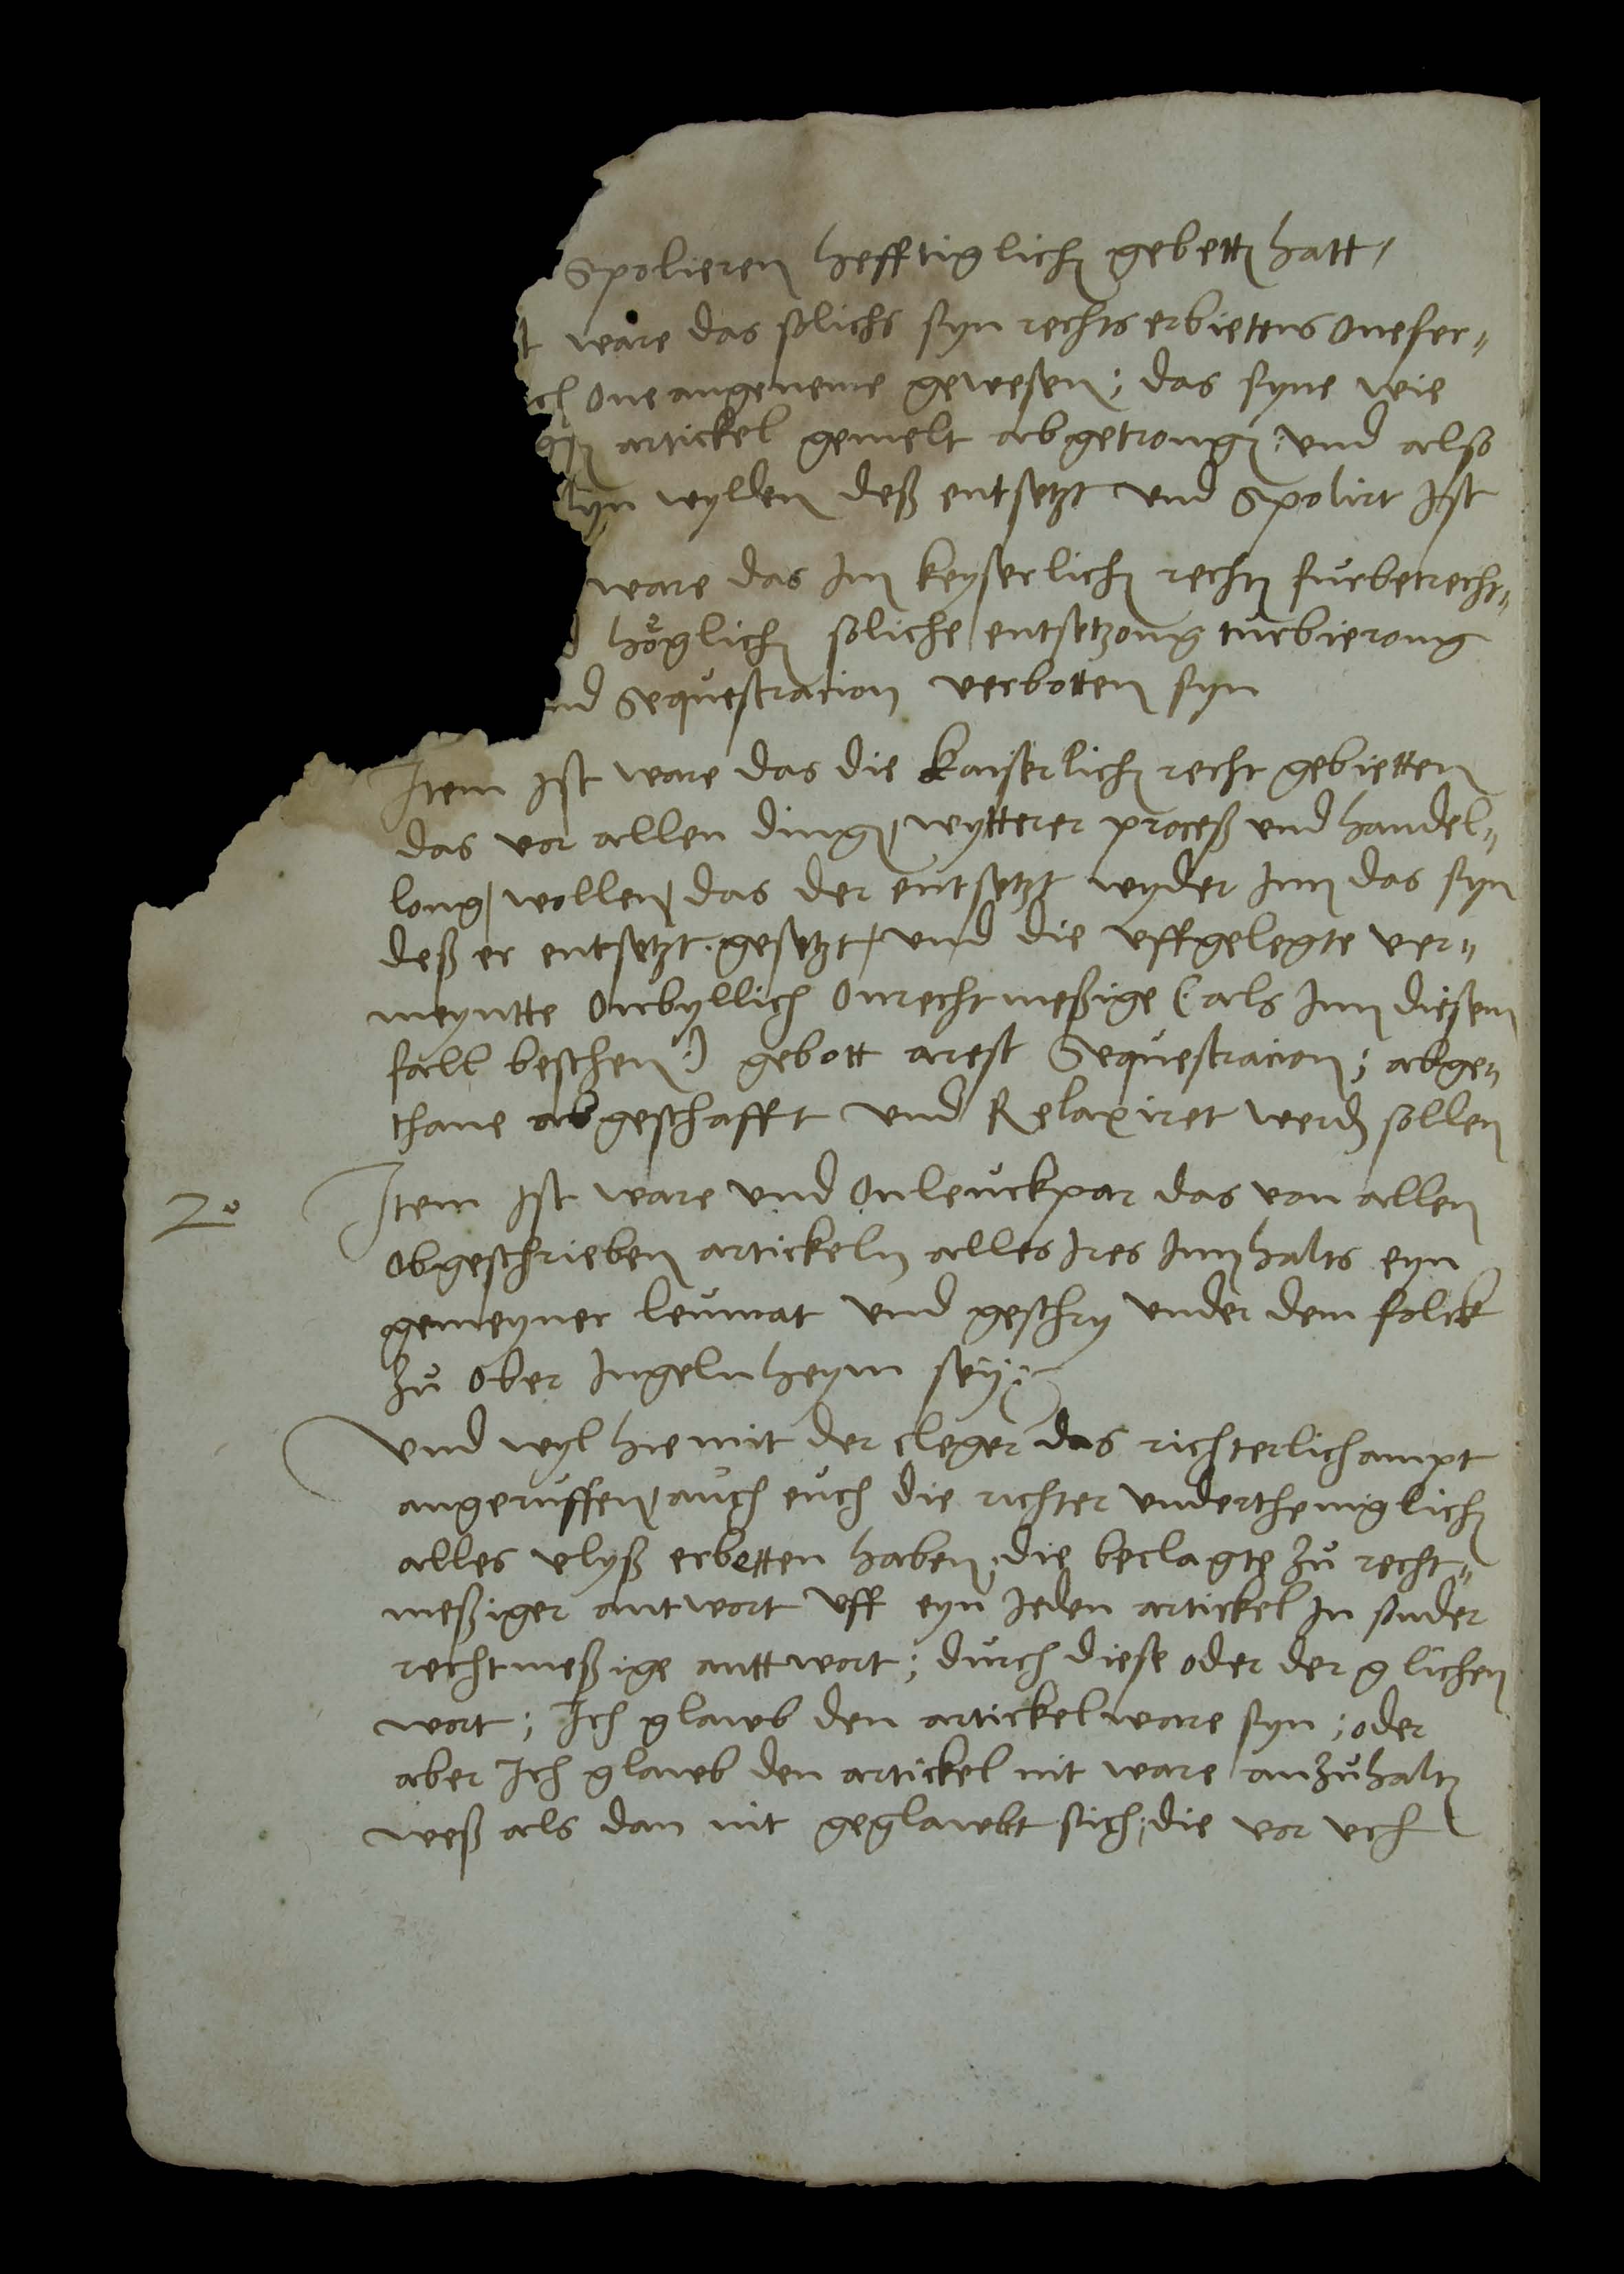 Spolieren hefftiglich gebett hatt,
t ware das solichs syn rechts erbietens onefer„
ch one angeneme gewesen; das syne wie
artickel gemelt abgetrong; und also
wyllen deß entsetzt und Spolirt Ist
ware das Im keyserlich recht furbetrecht„
höglich soliche entsetzong turbierong
nd Sequestracion verbotten syn
Item Ist ware das die kaiserlich recht gebietten
das vor allen ding, wytterer proceß und handel„
long, wollen, das der entsetzt wyder Inn das syn
deß er entsetzt. gesetzt, und die uffgelegte ver„
meyntte Onbyllich Onrechtmeßige (: als Inn diesem
fall beschen :) gebott arest Sequestracion; abge„
thane abgeschafft und Relaxiret werd sollen
20 Item Ist ware und Onleuckpar das von allen
obgeschrieben artickeln alles Ires Innhalts eyn
gemeyner leumat und geschry under dem folck
zu Ober Ingelnheym sey:
Und wyl hiemit der cleger das richterlich ampt
angeruffen, auch euch die richter undertheniglich
alles vlyß erbetten haben, die beclagte zu recht„
meßiger antwort uff eyn Jeden artickel In sonder
rechtmeßige anttwort; durch diese oder der glichen
wort; Ich glaweb den artickel ware syn; oder
aber Ich glaweb den artickel nit ware anzuhalt
weß als dan nit geglawbt sich, die vor uch